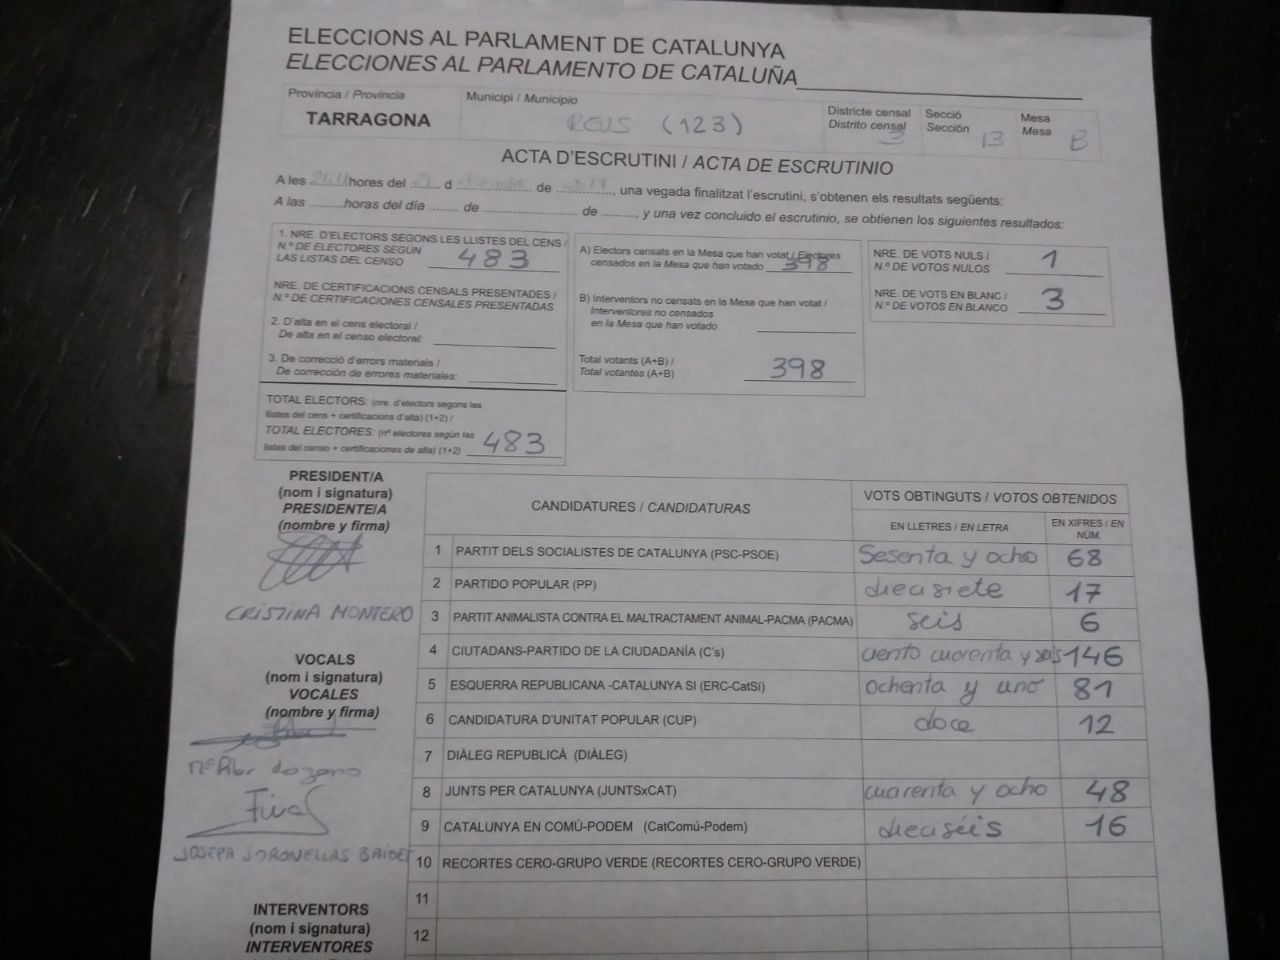 ELECCIONS AL PARLAMENT DE CATALUNYA
ELECCIONES AL PARLAMENTO DE CATALUÑA
Provincia / Provincia
TARRAGONA
Municipi / Municipio
REUS (123)
Districte censal
Distrito censal
3
Secció
Sección
13
Mesa
Mesa
B
ACTA D'ESCRUTINI / ACTA DE ESCRUTINIO
A les hores del d de 2017, una vegada finalitzat l'escrutini, s'obtenen els resultats següents:
A las horas del día de de , y una vez concluido el escrutinio, se obtienen los siguientes resultados:
1. NRE. D'ELECTORS SEGONS LES LLISTES DEL CENS /
N.º DE ELECTORES SEGÚN
LAS LISTAS DEL CENSO 483
NRE. DE CERTIFICACIONS CENSALS PRESENTADES /
N.º DE CERTIFICACIONES CENSALES PRESENTADAS
2. D'alta en el cens electoral /
De alta en el censo electoral:
3. De correcció d'errors materials /
De corrección de errores materiales:
TOTAL ELECTORS: (nre. d'electors segons les
llistes del cens + certificacions d'alta) (1+2) /
TOTAL ELECTORES: (nº electores según las
listas del censo + certificaciones de alta) (1+2) 483
A) Electors censats en la Mesa que han votat / Electores
censados en la Mesa que han votado 398
B) Interventors no censats en la Mesa que han votat /
Interventores no censados
en la Mesa que han votado
Total votants (A+B) /
Total votantes (A+B) 398
NRE. DE VOTS NULS /
N.º DE VOTOS NULOS 1
NRE. DE VOTS EN BLANC /
N.º DE VOTOS EN BLANCO 3
PRESIDENT/A
(nom i signatura)
PRESIDENTE/A
(nombre y firma)
CRISTINA MONTERO
VOCALS
(nom i signatura)
VOCALES
(nombre y firma)
JOSEPA
INTERVENTORS
(nom i signatura)
INTERVENTORES
CANDIDATURES / CANDIDATURAS
VOTS OBTINGUTS / VOTOS OBTENIDOS
EN LLETRES / EN LETRA
EN XIFRES / EN
NÚM.
1 PARTIT DELS SOCIALISTES DE CATALUNYA (PSC-PSOE) Sesenta y ocho 68
2 PARTIDO POPULAR (PP) diecisiete 17
3 PARTIT ANIMALISTA CONTRA EL MALTRACTAMENT ANIMAL-PACMA (PACMA) seis 6
4 CIUTADANS-PARTIDO DE LA CIUDADANÍA (C's) ciento cuarenta y seis 146
5 ESQUERRA REPUBLICANA -CATALUNYA SI (ERC-CatSí) Ochenta y uno 81
6 CANDIDATURA D'UNITAT POPULAR (CUP) doce 12
7 DIÀLEG REPUBLICÀ (DIÀLEG)
8 JUNTS PER CATALUNYA (JUNTSxCAT) cuarenta y ocho 48
9 CATALUNYA EN COMÚ-PODEM (CatComú-Podem) dieciséis 16
10 RECORTES CERO-GRUPO VERDE (RECORTES CERO-GRUPO VERDE)
11
12